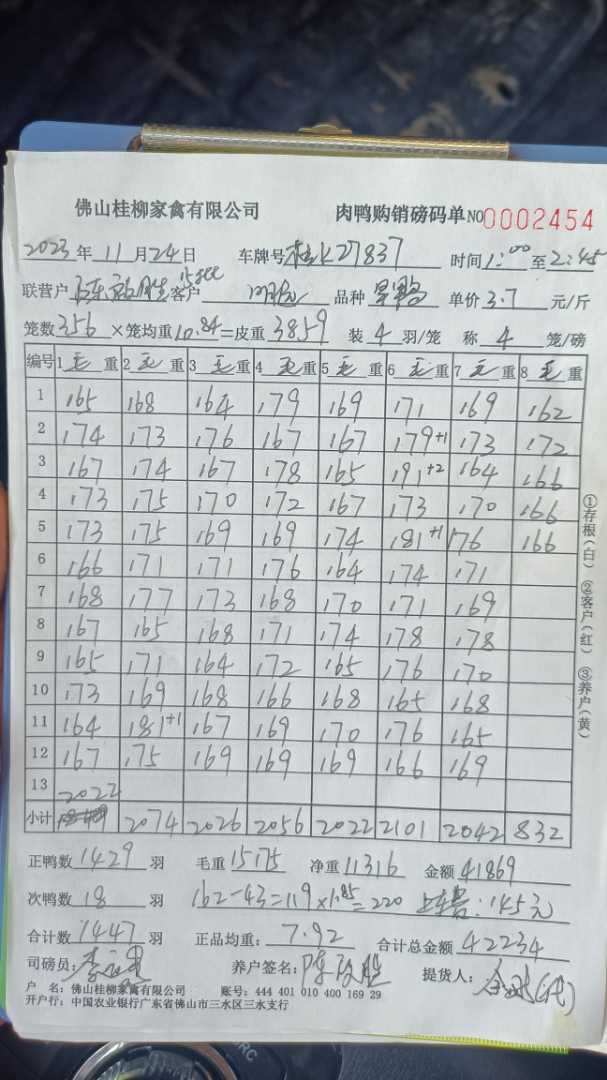 佛山桂柳家禽有限公司 肉鸭购销磅码单 NO 0002454
2023年11月24日 车牌号 桂K27837 时间1:00至2:45
联营户 客户 品种 单价3.7元/斤
笼数356×笼均重10.84=皮重3859 装4羽/笼 称4笼/磅
编号 1毛重 2毛重 3毛重 4毛重 5毛重 6毛重 7毛重 8毛重
1 165 168 164 179 169 171 169 162
2 174 173 176 167 167 179+1 173 172
3 167 174 167 178 165 191+2 164 166
4 173 175 170 172 167 173 170 166
5 173 175 169 169 174 181+1 176 166
6 166 171 171 176 164 174 171
7 168 177 173 168 170 171 169
8 167 165 168 171 174 178 178
9 165 171 164 172 165 176 170
10 173 169 168 166 168 165 168
11 164 181+1 167 169 170 176 165
12 167 175 169 169 169 166 169
13 2022
小计 2074 2026 2056 2022 2101 2042 832
①存根(白) ②客户(红) ③养户(黄)
正鸭数1429羽 毛重15175 净重11316 金额41869
次鸭数18羽 162-43=119×1.85=220 上车费:145元
合计数1447羽 正品均重:7.92 合计总金额42234
司磅员: 养户签名: 提货人:
户 名:佛山桂柳家禽有限公司 账号:444 401 010 400 169 29
开户行:中国农业银行广东省佛山市三水区三水支行